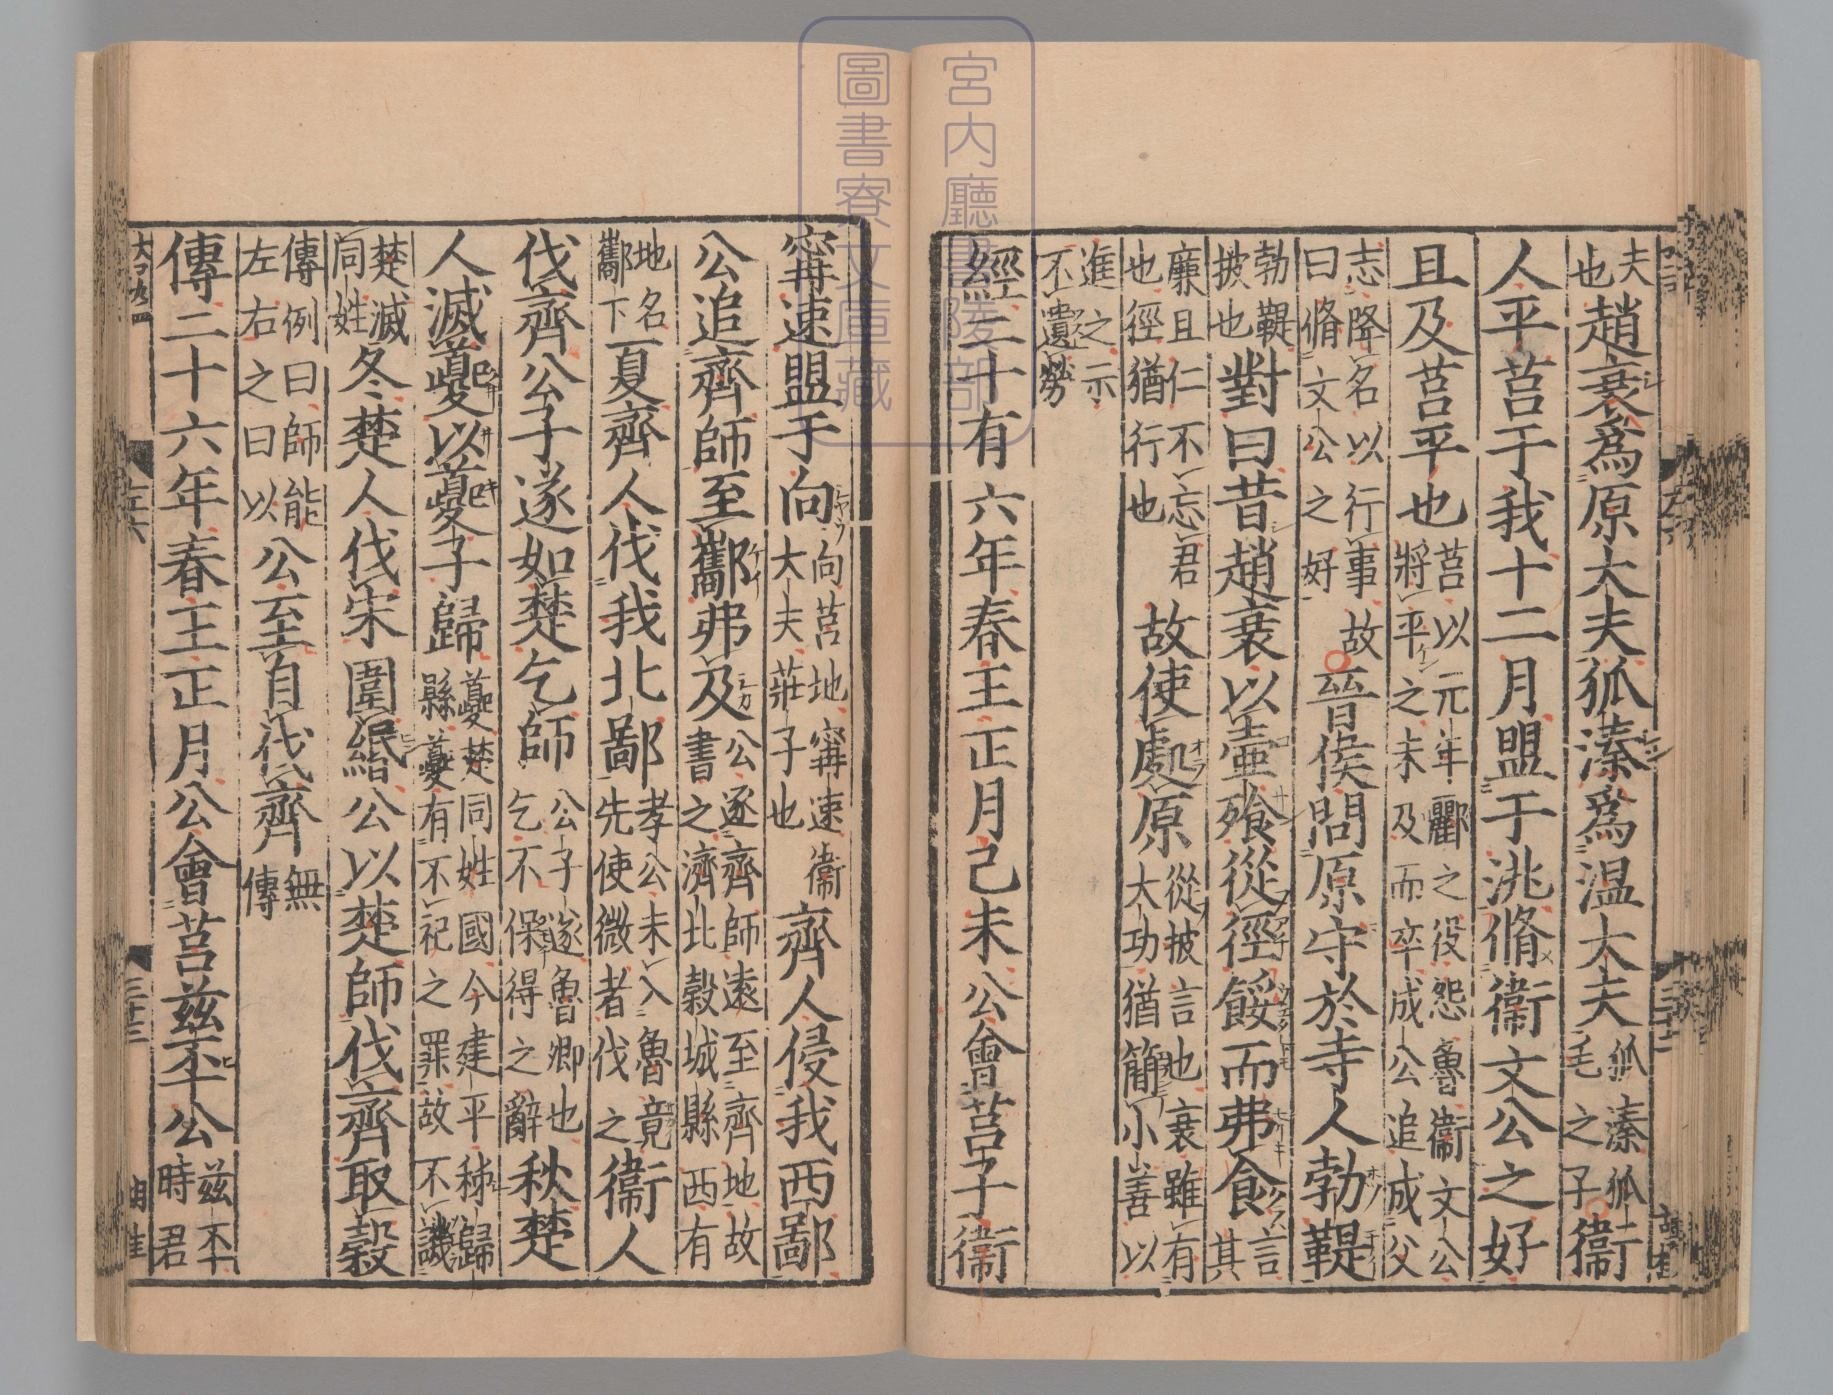 夫也趙衰爲原大夫狐溱爲溫大夫狐溱狐毛之子衞
人平莒于我十二月盟于洮脩衞文公之好
且及莒平也莒以元年酈之役怨魯衞文公將平之未及而卒成公追成父
志降名以行事故曰脩文公之好晉侯問原守於寺人勃鞮
勃鞮披也對曰昔趙衰以壺飱從徑餒而弗食言其
廉且仁不忘君也徑猶行也故使處原從披言也衰雖有大功猶簡小善以
進之示不遺勞
經二十有六年春王正月己未公會莒子衞
甯速盟于向向莒地甯速衞大夫莊子也齊人侵我西鄙
公追齊師至酅弗及公逐齊師遠至齊地故書之濟北穀城縣西有
地名酅下夏齊人伐我北鄙孝公未入魯竟先使微者伐之衞人
伐齊公子遂如楚乞師公子遂魯卿也乞不保得之辭秋楚
人滅夔以夔子歸夔楚同姓國今建平秭歸縣夔有不祀之罪故不譏
楚滅同姓冬楚人伐宋圍緡公以楚師伐齊取穀
傳例曰師能左右之曰以公至自伐齊無傳
傳二十六年春王正月公會莒茲丕公茲丕時君
宮内廳書陵部
圖書寮文庫藏